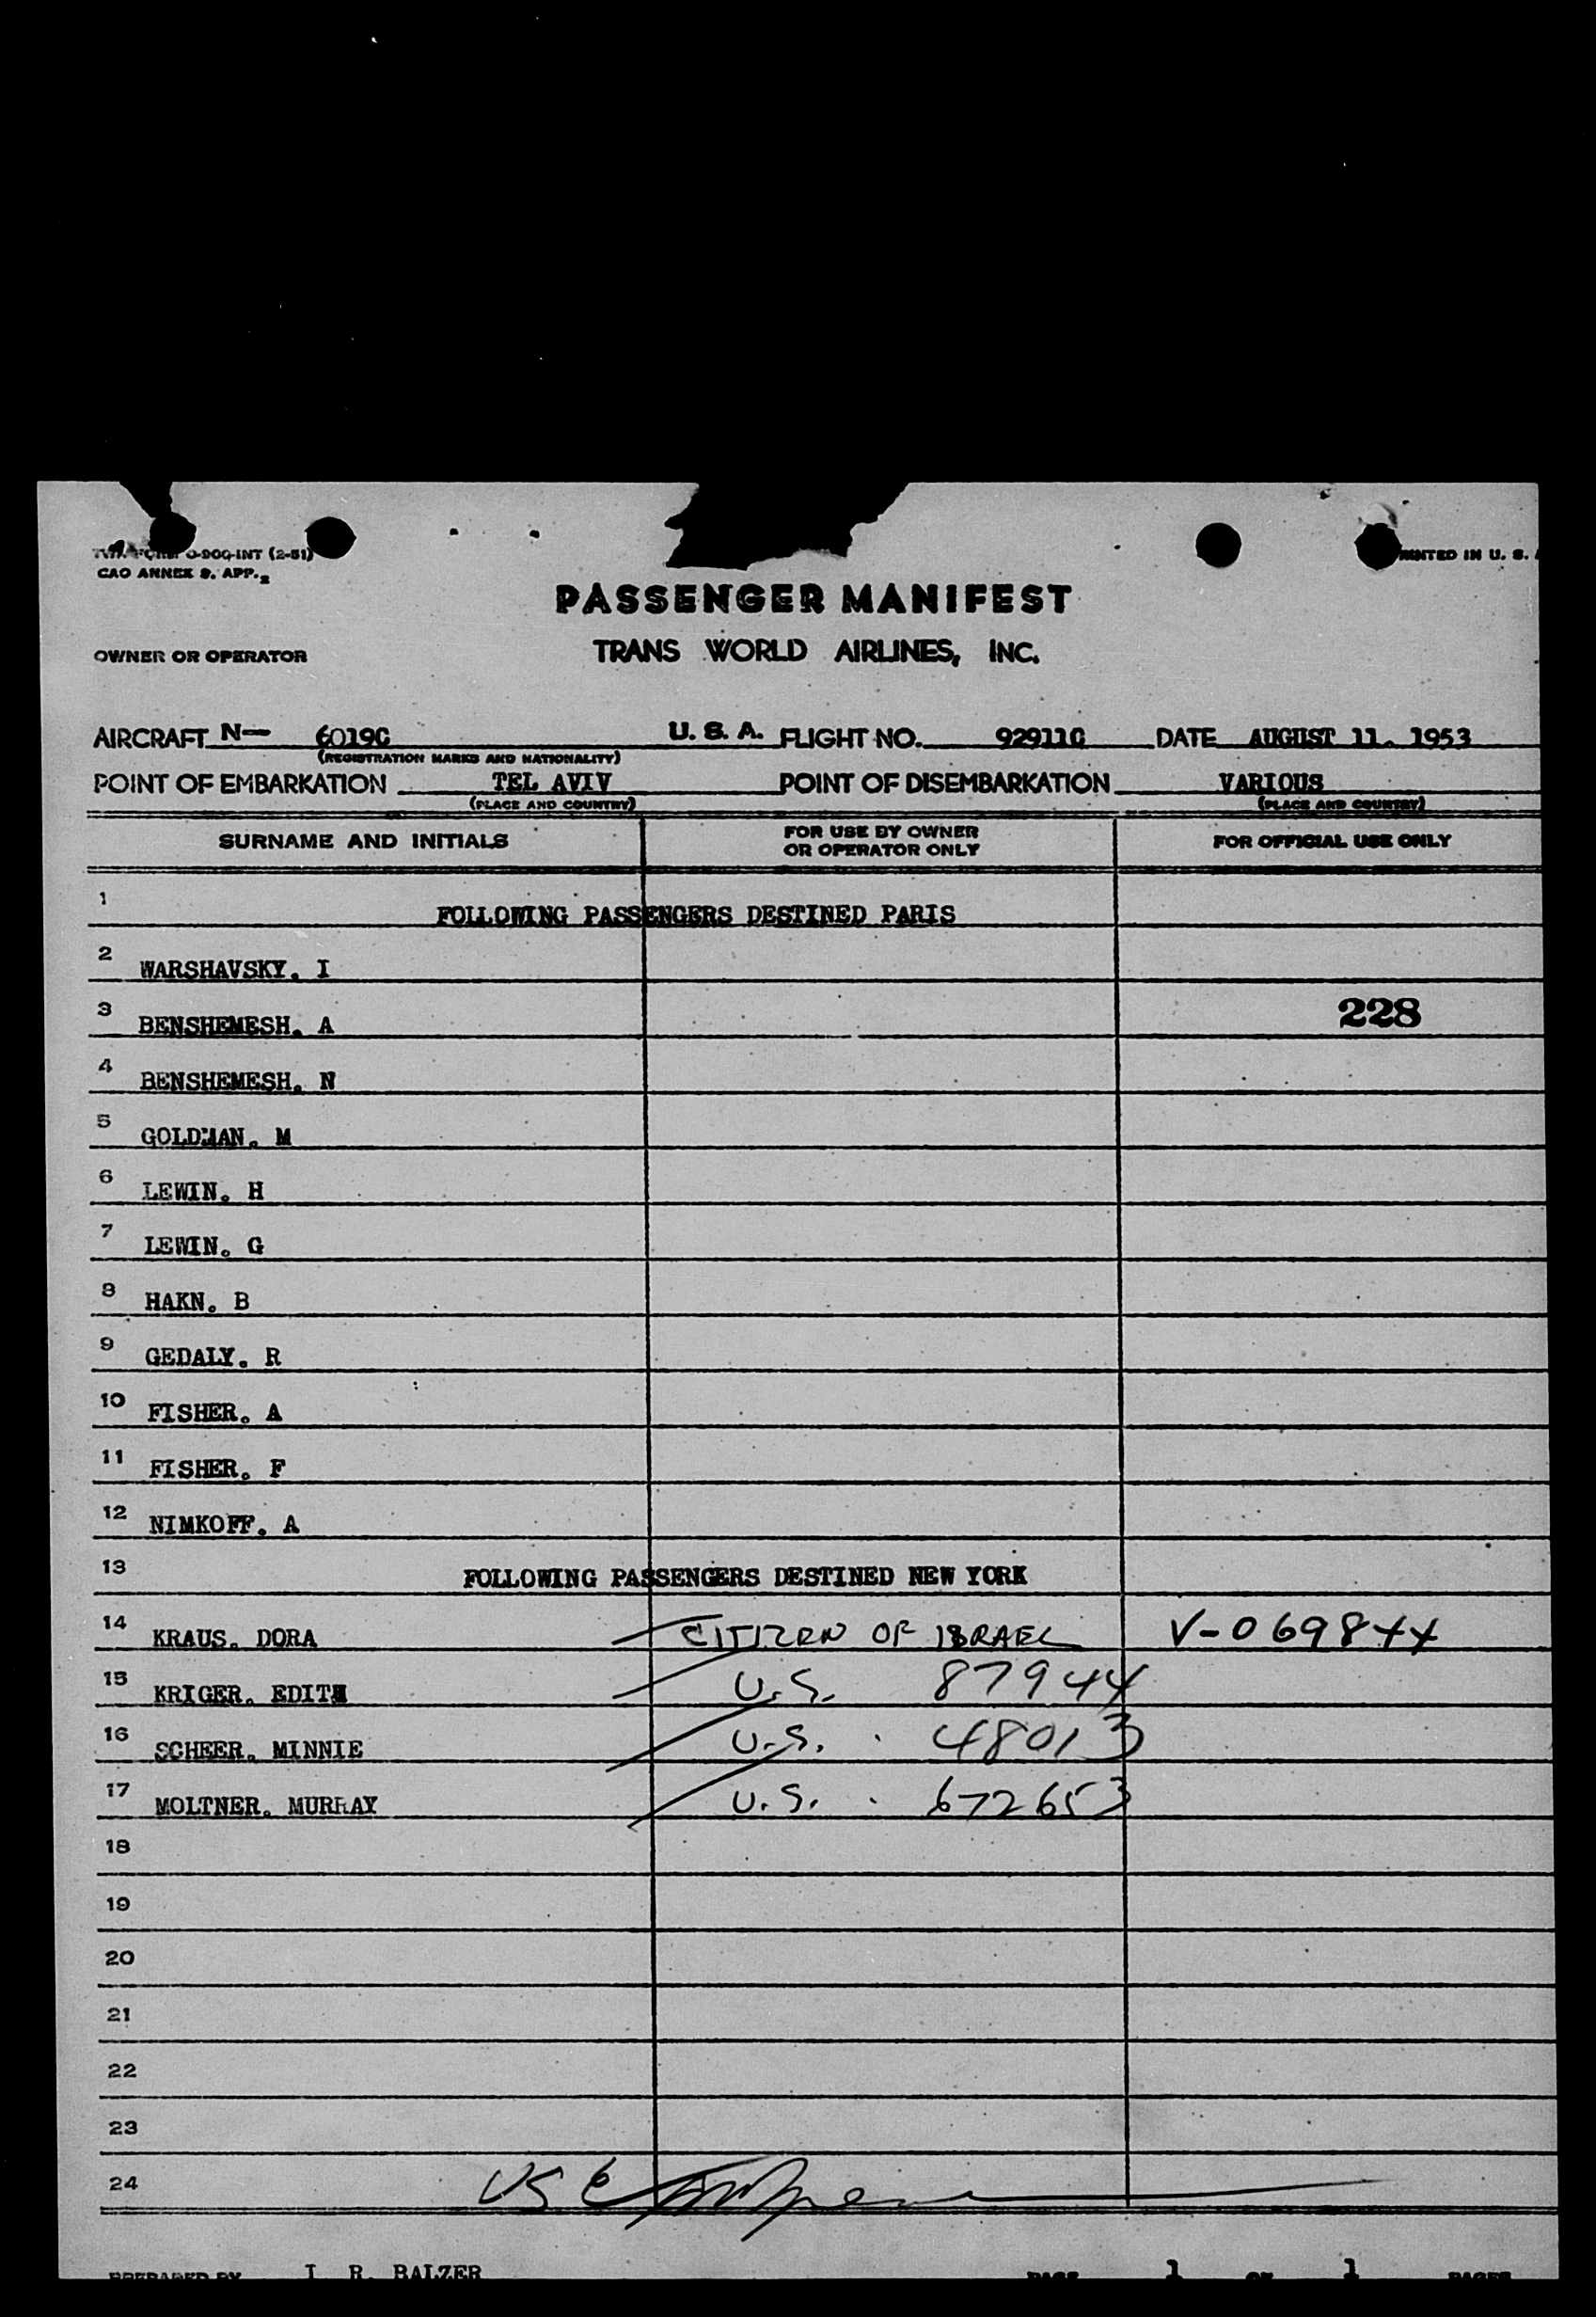 0-900-INT (2-51)
CAO ANNEX 9, APP. 2
PRINTED IN U. S.
PASSENGER MANIFEST
OWNER OR OPERATOR TRANS WORLD AIRLINES, INC.
AIRCRAFT N— 6019C U. S. A. FLIGHT NO. 92911C DATE AUGUST 11. 1953
(REGISTRATION MARKS AND NATIONALITY)
POINT OF EMBARKATION TEL AVIV POINT OF DISEMBARKATION VARIOUS
(PLACE AND COUNTRY) (PLACE AND COUNTRY)
SURNAME AND INITIALS FOR USE BY OWNER OR OPERATOR ONLY FOR OFFICIAL USE ONLY
1 FOLLOWING PASSENGERS DESTINED PARIS
2 WARSHAVSKY. I
3 BENSHEMESH. A 228
4 BENSHEMESH. N
5 GOLDMAN. M
6 LEWIN. H
7 LEWIN. G
8 HAKN. B
9 GEDALY. R
10 FISHER. A
11 FISHER. F
12 NIMKOFF. A
13 FOLLOWING PASSENGERS DESTINED NEW YORK
14 KRAUS. DORA CITIZEN OF ISRAEL V-069844
15 KRIGER. EDITH U.S. 87944
16 SCHEER. MINNIE U.S. 48013
17 MOLTNER. MURRAY U.S. 672653
18
19
20
21
22
23
24
PREPARED BY I R. BALZER PAGE 1 OF 1 PAGES